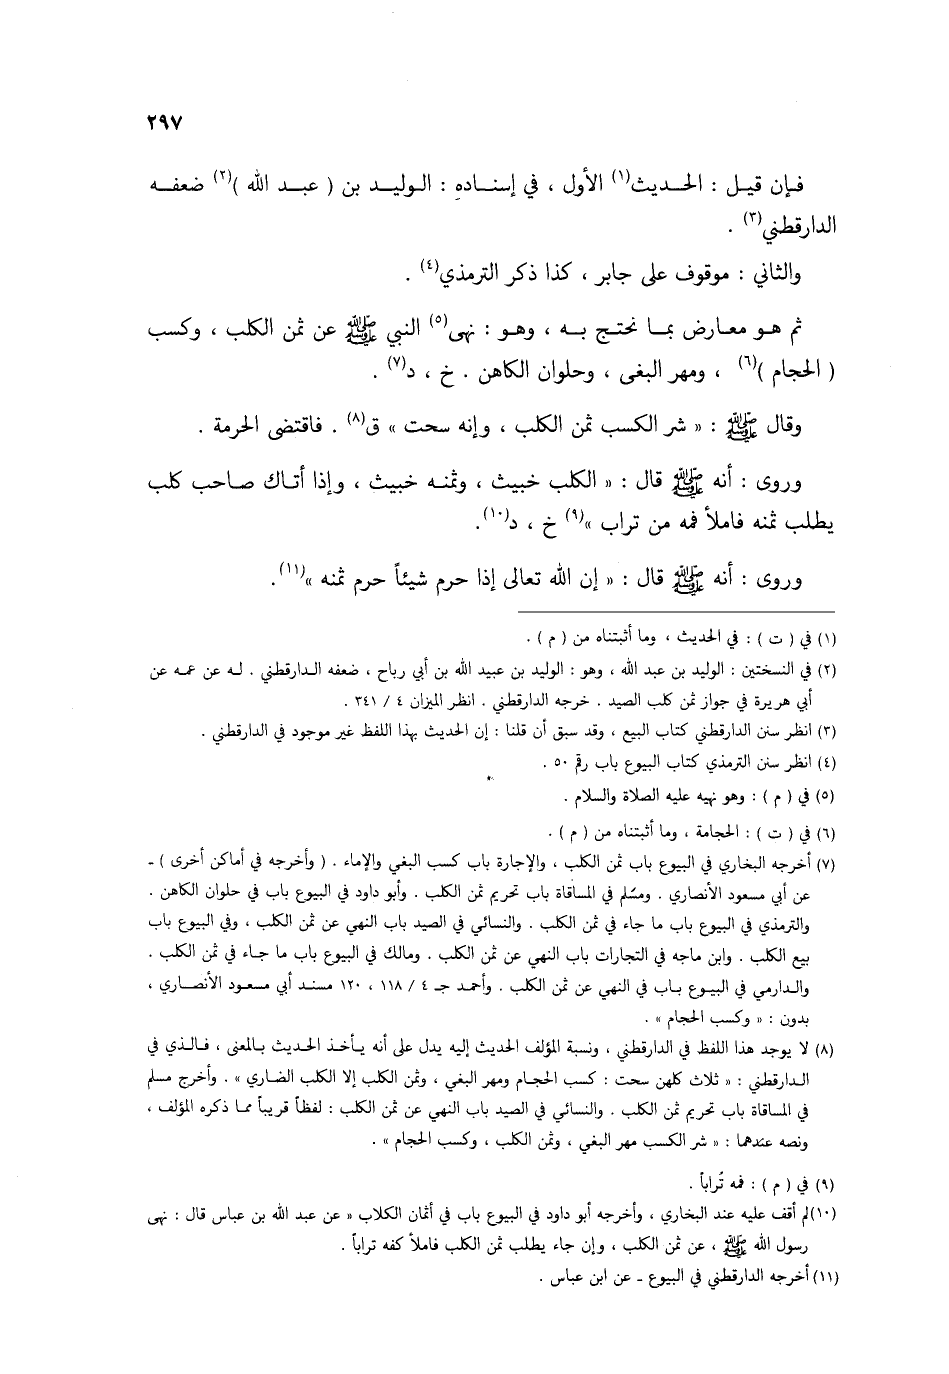 ٢٩٧
فإن قيل : الحديث(١) الأول ، في إسناده : الوليد بن ( عبد الله )(٢) ضعفه
الدارقطني(٣) .
والثاني : موقوف على جابر ، كذا ذكر الترمذي(٤) .
ثم هو معارض بما نحتج به ، وهو : نهى(٥) النبي ﷺ عن ثمن الكلب ، وكسب
( الحجام )(٦) ، ومهر البغى ، وحلوان الكاهن . خ ، د(٧) .
وقال ﷺ : « شر الكسب ثمن الكلب ، وإنه سحت » ق(٨) . فاقتضى الحرمة .
وروى : أنه ﷺ قال : « الكلب خبيث ، وثمنه خبيث ، وإذا أتاك صاحب كلب
يطلب ثمنه فاملأ فمه من تراب »(٩) خ ، د(١٠).
وروى : أنه ﷺ قال : « إن الله تعالى إذا حرم شيئاً حرم ثمنه »(١١).
(١) في ( ت ) : في الحديث ، وما أثبتناه من ( م ) .
(٢) في النسختين : الوليد بن عبد الله ، وهو : الوليد بن عبيد الله بن أبي رباح ، ضعفه الدارقطني . له عن عمه عن
أبي هريرة في جواز ثمن كلب الصيد . خرجه الدارقطني . انظر الميزان ٤ / ٣٤١ .
(٣) انظر سنن الدارقطني كتاب البيع ، وقد سبق أن قلنا : إن الحديث بهذا اللفظ غير موجود في الدارقطني .
(٤) انظر سنن الترمذي كتاب البيوع باب رقم ٥٠ .
(٥) في ( م ) : وهو نهيه عليه الصلاة والسلام .
(٦) في ( ت ) : الحجامة ، وما أثبتناه من ( م ) .
(٧) أخرجه البخاري في البيوع باب ثمن الكلب ، والإجارة باب كسب البغي والإماء . ( وأخرجه في أماكن أخرى ) -
عن أبي مسعود الأنصاري . ومسلم في المساقاة باب تحريم ثمن الكلب . وأبو داود في البيوع باب في حلوان الكاهن .
والترمذي في البيوع باب ما جاء في ثمن الكلب . والنسائي في الصيد باب النهي عن ثمن الكلب ، وفي البيوع باب
بيع الكلب . وابن ماجه في التجارات باب النهي عن ثمن الكلب . ومالك في البيوع باب ما جاء في ثمن الكلب .
والدارمي في البيوع باب في النهي عن ثمن الكلب . وأحمد جـ ٤ / ١١٨ ، ١٢٠ مسند أبي مسعود الأنصاري ،
بدون : « وكسب الحجام » .
(٨) لا يوجد هذا اللفظ في الدارقطني ، ونسبة المؤلف الحديث إليه يدل على أنه يأخذ الحديث بالمعنى ، فالذي في
الدارقطني : « ثلاث كلهن سحت : كسب الحجام ومهر البغي ، وثمن الكلب إلا الكلب الضاري » . وأخرج مسلم
في المساقاة باب تحريم ثمن الكلب . والنسائي في الصيد باب النهي عن ثمن الكلب : لفظاً قريباً مما ذكره المؤلف ،
ونصه عندهما : « شر الكسب مهر البغي ، وثمن الكلب ، وكسب الحجام » .
(٩) في ( م ) : فمه تُراباً .
(١٠)لم أقف عليه عند البخاري ، وأخرجه أبو داود في البيوع باب في أثمان الكلاب « عن عبد الله بن عباس قال : نهى
رسول الله ﷺ ، عن ثمن الكلب ، وإن جاء يطلب ثمن الكلب فاملأ كفه تراباً .
(١١) أخرجه الدارقطني في البيوع - عن ابن عباس .